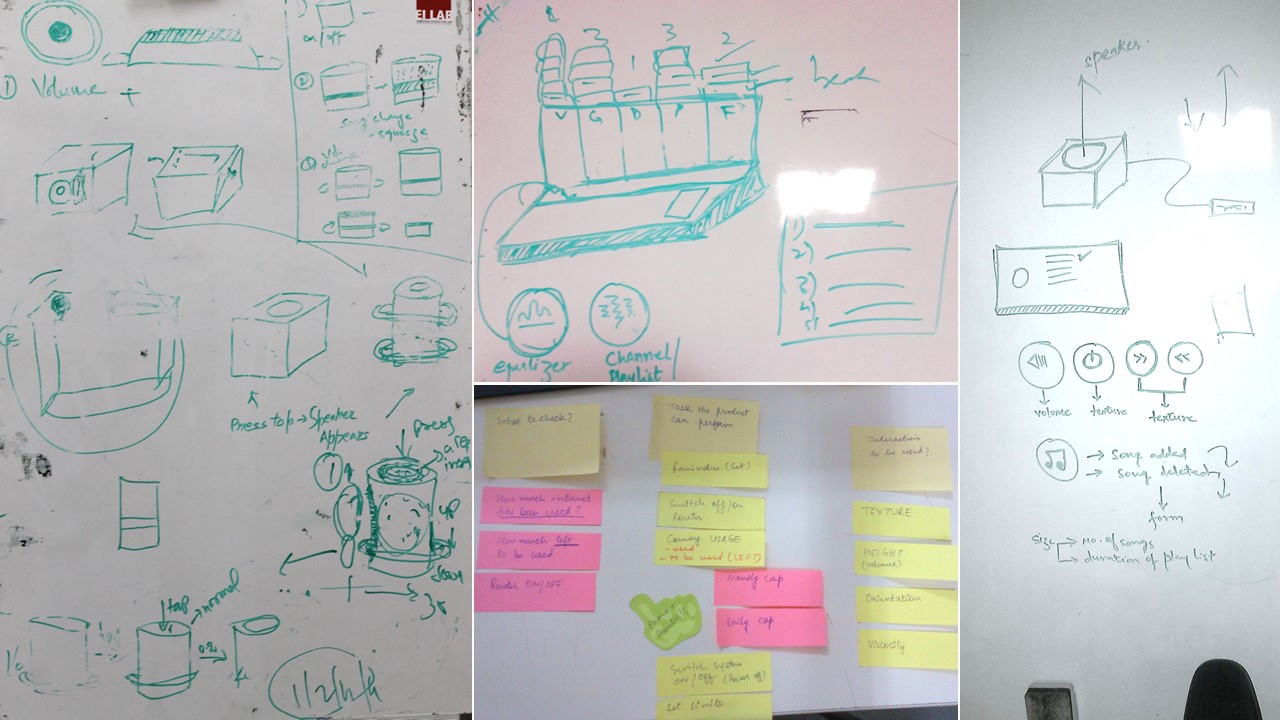 ELLAB
1)
on/off
① Volume +
②
song change
- squeeze
③ Vol
Press top → Speaker
Appears
press
①
up
down
tap
→ normal
3
1
3
2
V
G
D
P
F
1)
2)
3)
4)
5)
equilizer
Channel/
Playlist
What to check?
How much internet
has been used?
How much left
to be used
Router ON/OFF
Task the product
can perform
Reminders (Set)
Switch off/on
Router
Convey USAGE
- used
- to be used (LEFT)
Montly cap
Daily cap
Switch system
ON/OFF (Power off)
Set limits
Interactions
to be used?
TEXTURE
HEIGHT
(Volume)
Orientation
Viscosity
speaker.
volume
texture
texture
→ Song added
→ Song deleted
form
Size → no. of songs
→ duration of play list